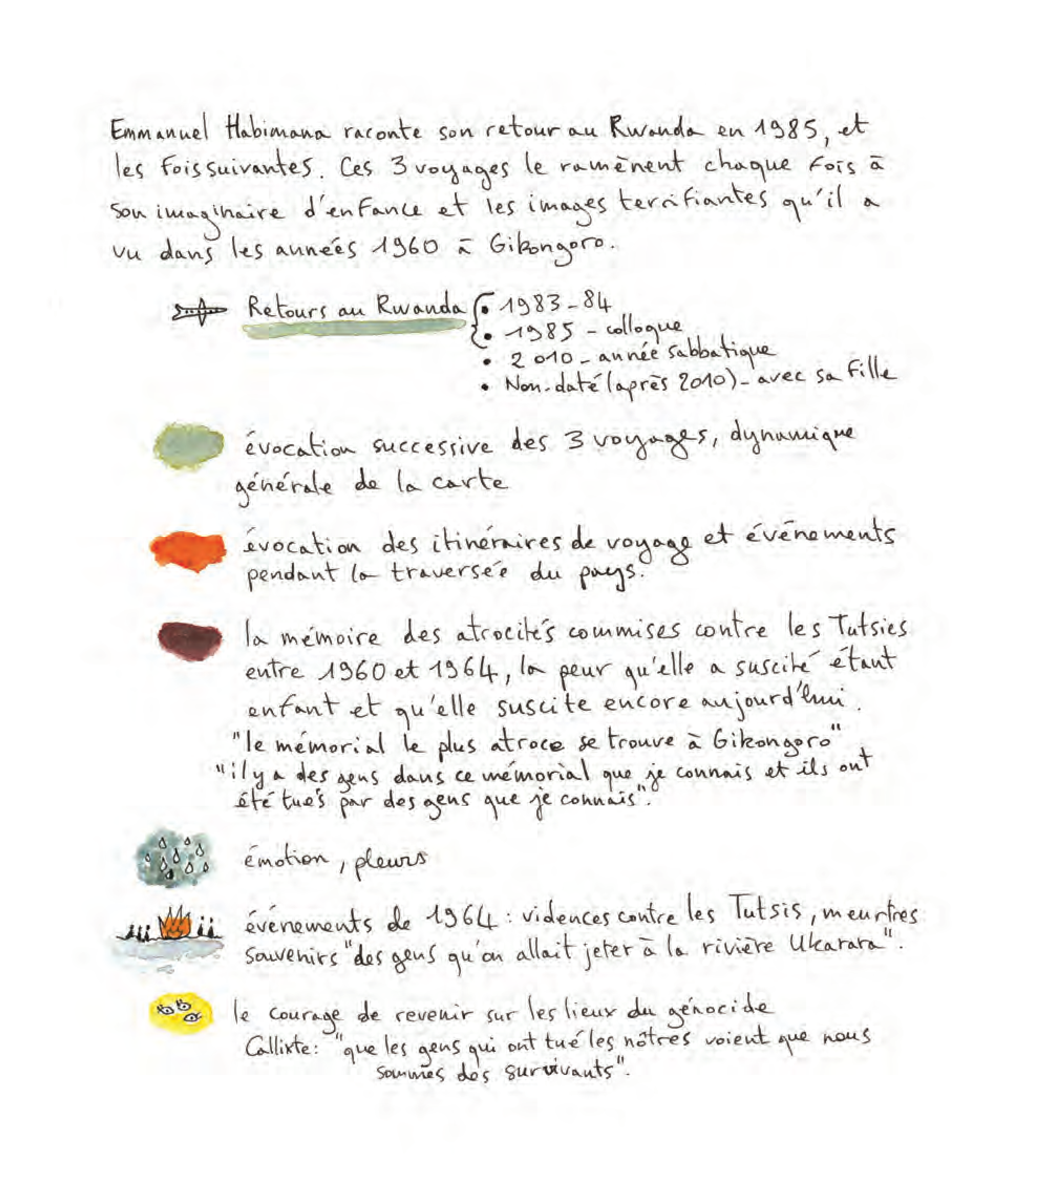 Emmanuel Habimana raconte son retour au Rwanda en 1985, et
les fois suivantes. Ces 3 voyages le ramènent chaque fois à
son imaginaire d'enfance et les images terrifiantes qu'il a
vu dans les années 1960 à Gikongoro.
Retours au Rwanda
• 1983-84
• 1985 - colloque
• 2010 - année sabbatique
• Non-daté (après 2010) - avec sa fille
évocation successive des 3 voyages, dynamique
générale de la carte
évocation des itinéraires de voyage et événements
pendant la traversée du pays.
la mémoire des atrocités commises contre les Tutsies
entre 1960 et 1964, la peur qu'elle a suscité étant
enfant et qu'elle suscite encore aujourd'hui.
"le mémorial le plus atroce se trouve à Gikongoro"
"il y a des gens dans ce mémorial que je connais et ils ont
été tués par des gens que je connais".
émotion, pleurs
événements de 1964 : violences contre les Tutsis, meurtres
souvenirs "des gens qu'on allait jeter à la rivière Ukarara".
le courage de revenir sur les lieux du génocide
Callixte : "que les gens qui ont tué les nôtres voient que nous
sommes des survivants".